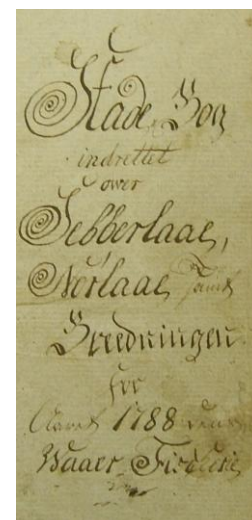 Stade Bog
indrettet
over
Sebberlaae,
Nørlaae, samt
Breedningen
for
Aaret 1788 
Waaer Fiskerie